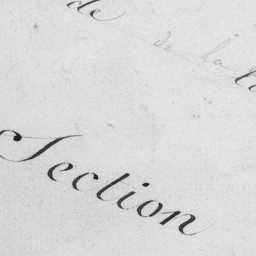 de de la
Section